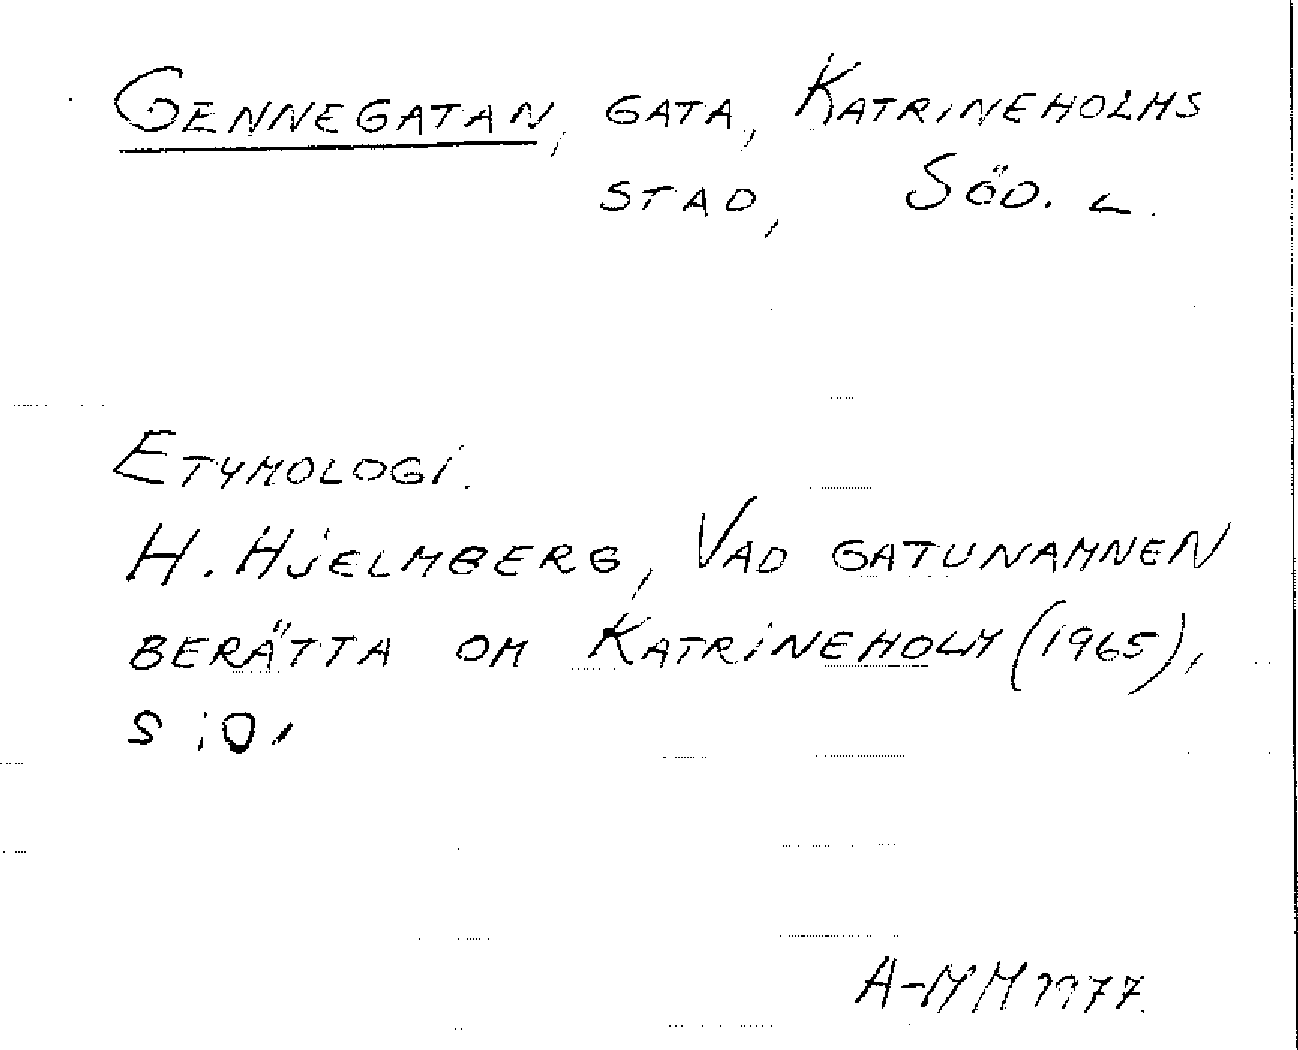 GENNEGATAN, GATA, KATRINEHOLMS
STAD, SÖD. L.
ETYMOLOGI.
H. HJELMBERG, VAD GATUNAMNEN
BERÄTTA OM KATRINEHOLM (1965),
S 10.
A-MM 1977.